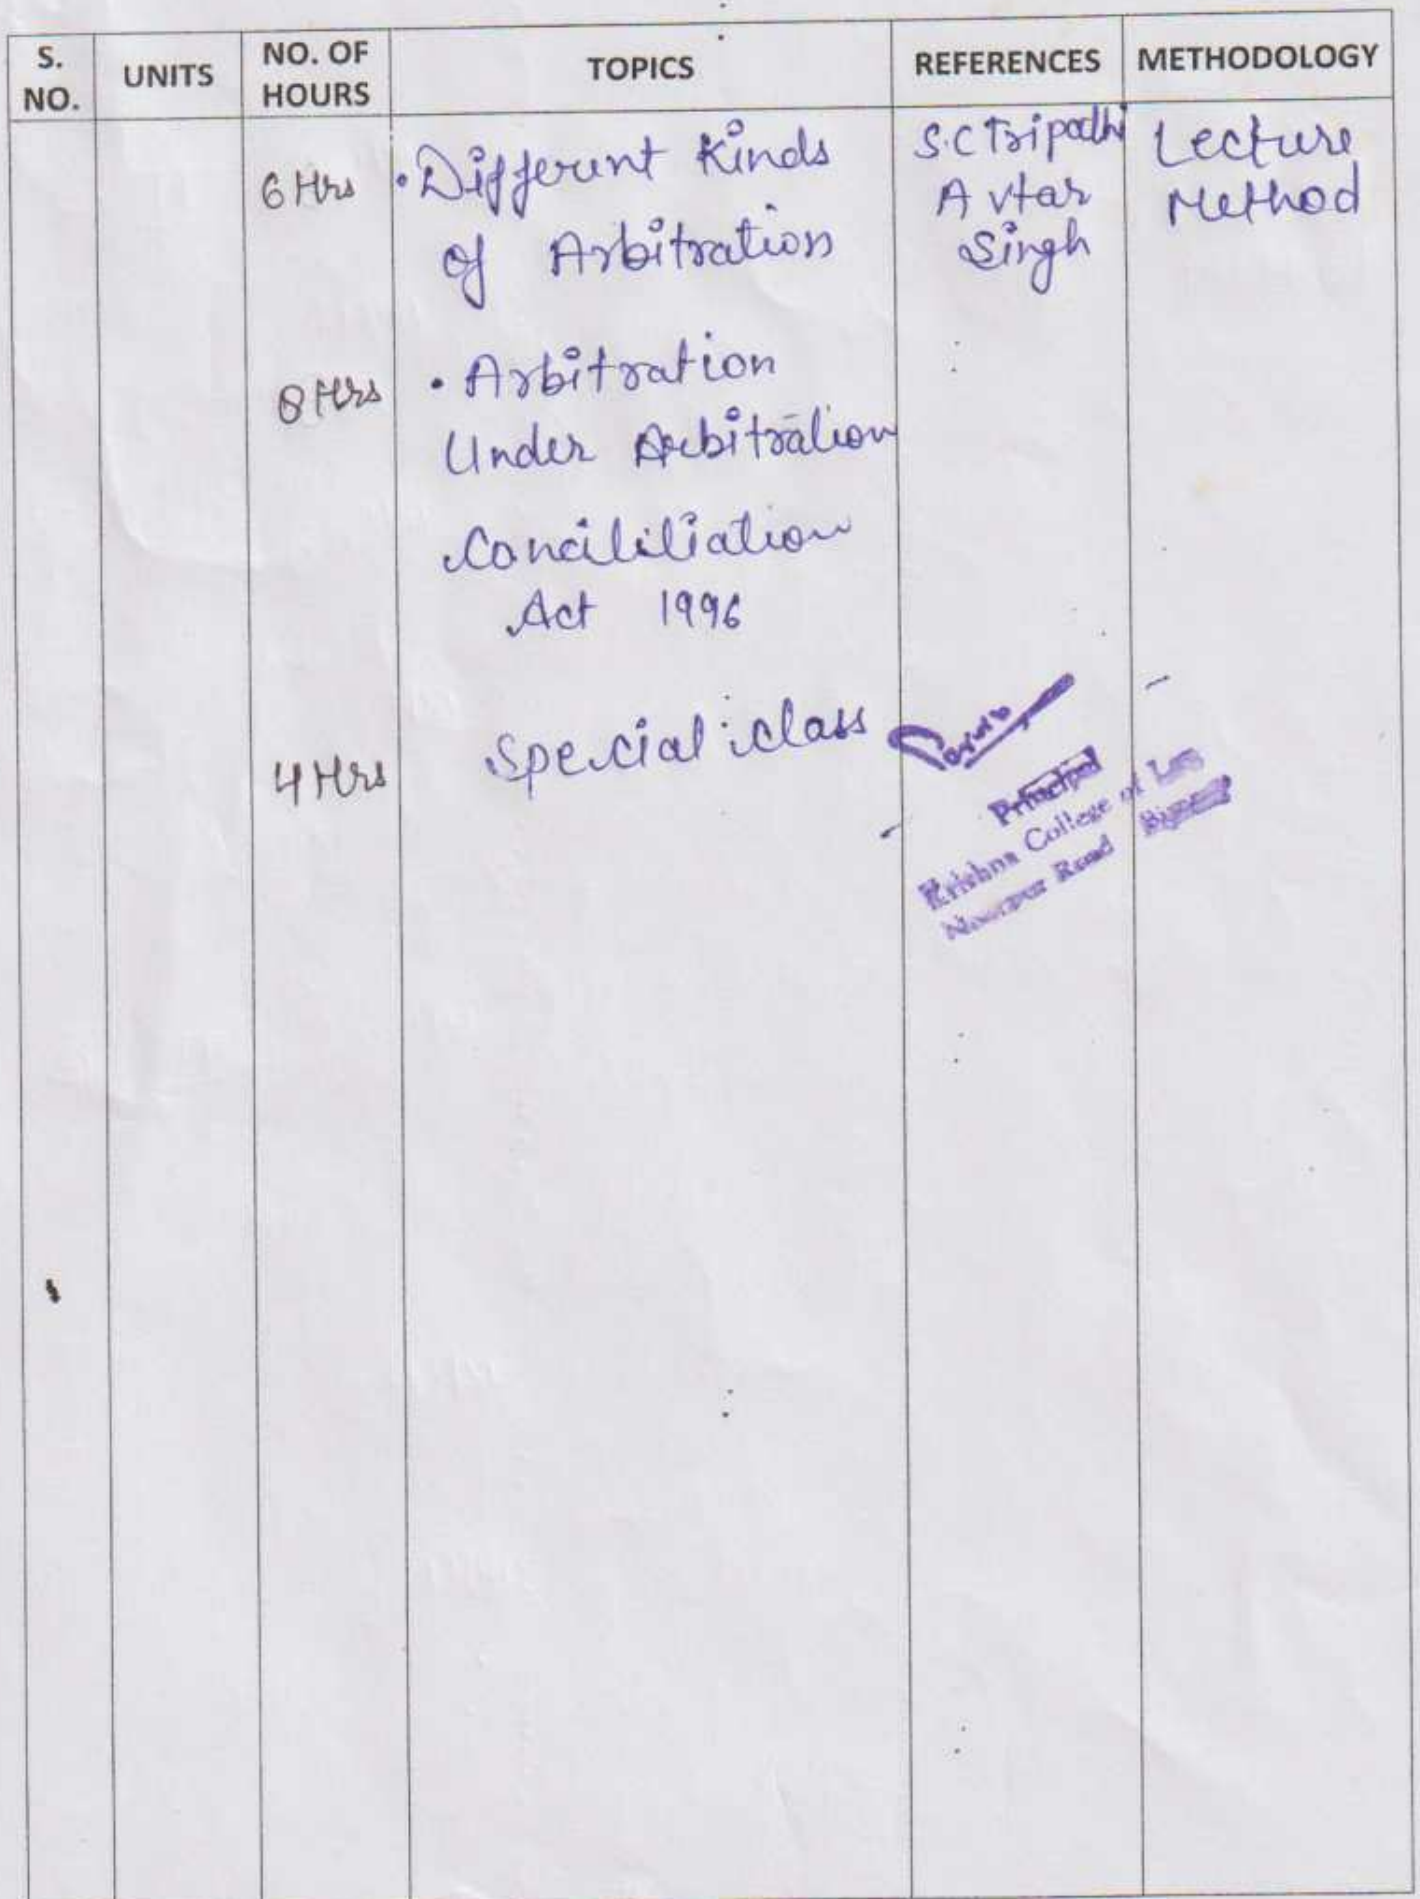 S. NO. UNITS NO. OF HOURS TOPICS REFERENCES METHODOLOGY
6 Hrs • Different Kinds S.C Tripathi Lecture
of Arbitration Avtar Method
Singh
8 Hrs • Arbitration
Under Arbitration
Concililiation
Act 1996
4 Hrs Special class
Principal
Krishna College of Law
Noorpur Road